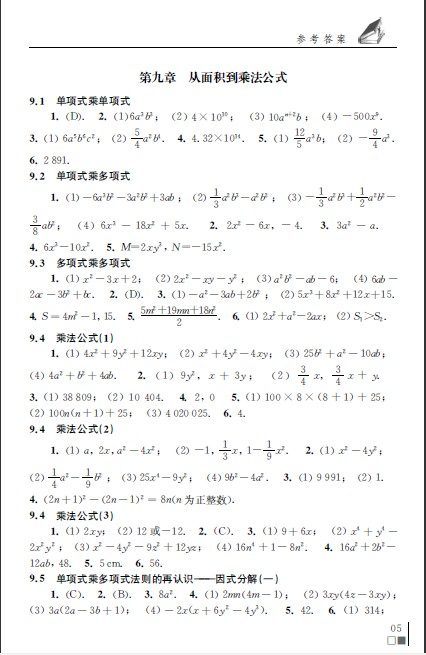 参考答案
第九章 从面积到乘法公式
9.1 单项式乘单项式
1. (D). 2. (1)6a³b³; (2)4×10¹⁰; (3)10aⁿ⁺²b; (4)-500x⁸.
3. (1)6a⁵b⁶c²; (2)5/4a²b⁴. 4. 4.32×10¹⁴. 5. (1)12/5a³b; (2)-9/4a².
6. 2 891.
9.2 单项式乘多项式
1. (1)-6a³b²-3a²b²+3ab; (2)1/3a²b²-a²b³; (3)-1/3a²b²+1/2a²b²-
3/8ab²; (4)6x³-18x²+5x. 2. 2x²-6x,-4. 3. 3a²-a.
4. 6x³-10x². 5. M=2xy², N=-15x².
9.3 多项式乘多项式
1. (1)x²-3x+2; (2)2x²-xy-y²; (3)a²b²-ab-6; (4)6ab-
2ac-3b²+bc. 2. (D). 3. (1)-a²-3ab+2b²; (2)5x³+8x²+12x+15.
4. S=4m²-1,15. 5. (5m²+19mn+18n²)/2. 6. (1)2x²+a²-2ax; (2)S₁>S₂.
9.4 乘法公式(1)
1. (1)4x²+9y²+12xy; (2)x²+4y²-4xy; (3)25b²+a²-10ab;
(4)4a²+b²+4ab. 2. (1)9y²,x+3y; (2)3/4x,3/4x+y.
3. (1)38 809; (2)10 404. 4. 2,0 5. (1)100×8×(8+1)+25;
(2)100n(n+1)+25; (3)4 020 025. 6. 4.
9.4 乘法公式(2)
1. (1)a,2x,a²-4x²; (2)-1,1/3x,1-1/9x². 2. (1)x²-4y²;
(2)1/4a²-1/9b²; (3)25x⁴-9y²; (4)9b²-4a². 3. (1)9 991; (2)1.
4. (2n+1)²-(2n-1)²=8n(n为正整数).
9.4 乘法公式(3)
1. (1)2xy; (2)12或-12. 2. (C). 3. (1)9+6x; (2)x⁴+y⁴-
2x²y²; (3)x²-4y²-9z²+12yz; (4)16n⁴+1-8n². 4. 16a²+2b²-
12ab,48. 5. 5 cm. 6. 56.
9.5 单项式乘多项式法则的再认识——因式分解(一)
1. (C). 2. (B). 3. 8a². 4. (1)2mn(4m-1); (2)3xy(4z-3xy);
(3)3a(2a-3b+1); (4)-2x(x+6y²-4y³). 5. 42. 6. (1)314;
05